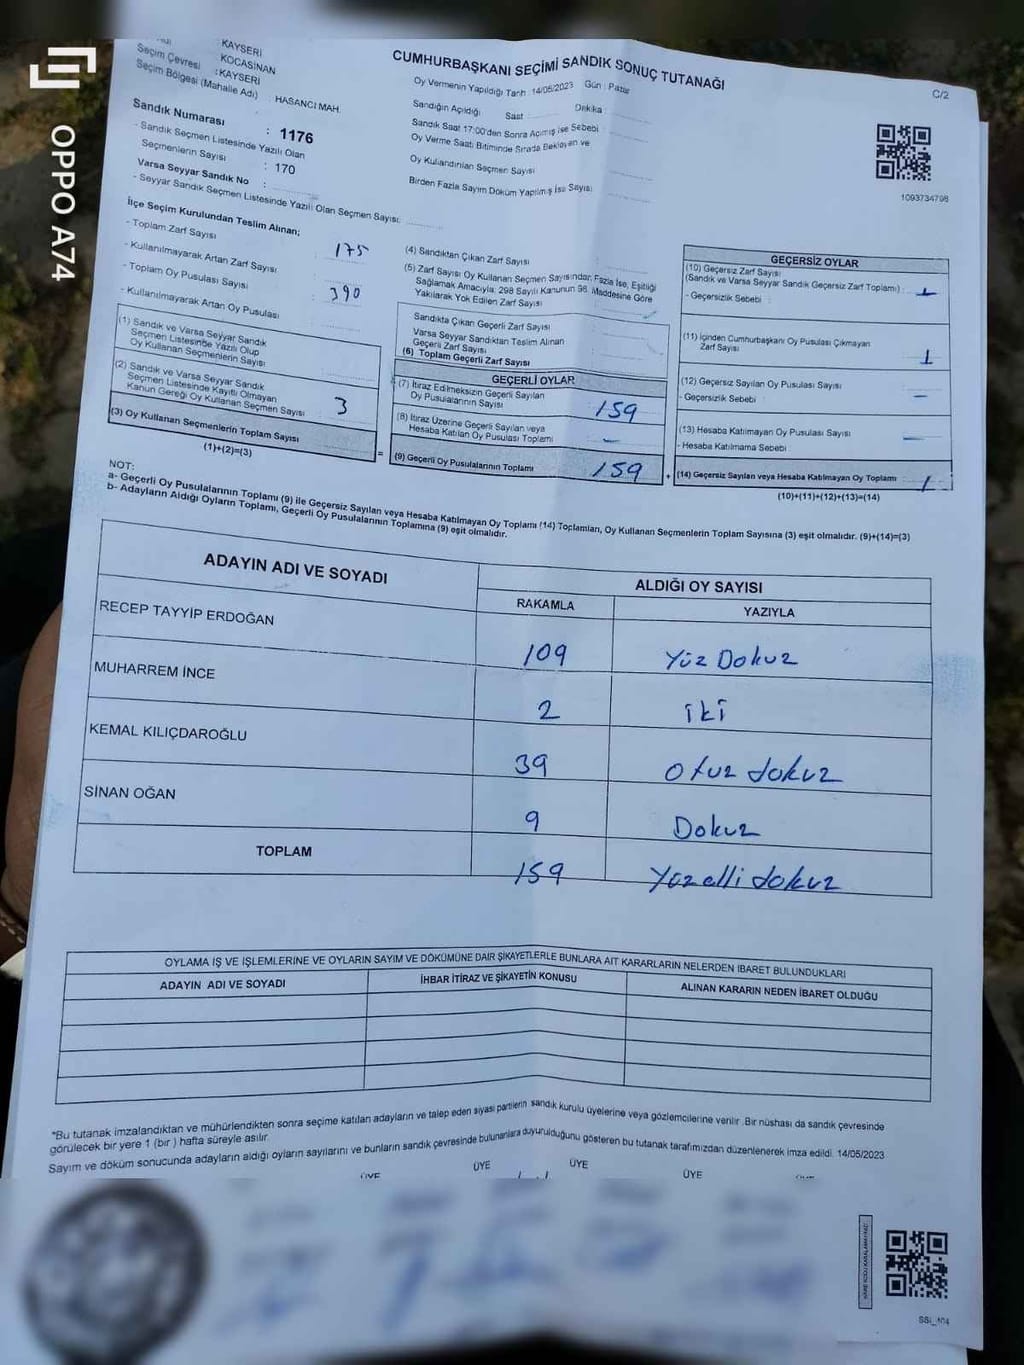 OPPO A74
KAYSERİ
KOCASİNAN
Seçim Çevresi : KAYSERİ
Seçim Bölgesi (Mahalle Adı) : HASANCI MAH.
Sandık Numarası : 1176
- Sandık Seçmen Listesinde Yazılı Olan
Seçmenlerin Sayısı : 170
Varsa Seyyar Sandık No :
- Seyyar Sandık Seçmen Listesinde Yazılı Olan Seçmen Sayısı:
CUMHURBAŞKANI SEÇİMİ SANDIK SONUÇ TUTANAĞI
C/2
Oy Vermenin Yapıldığı Tarih : 14/05/2023 Gün : Pazar
Sandığın Açıldığı Saat Dakika
Sandık Saat 17:00'den Sonra Açılmış İse Sebebi
Oy Verme Saati Bitiminde Sırada Bekleyen ve
Oy Kullandırılan Seçmen Sayısı
Birden Fazla Sayım Döküm Yapılmış İse Sayısı
1093734798
İlçe Seçim Kurulundan Teslim Alınan;
- Toplam Zarf Sayısı 175
- Kullanılmayarak Artan Zarf Sayısı
- Toplam Oy Pusulası Sayısı 390
- Kullanılmayarak Artan Oy Pusulası
(1) Sandık ve Varsa Seyyar Sandık
Seçmen Listesinde Yazılı Olup
Oy Kullanan Seçmenlerin Sayısı
(2) Sandık ve Varsa Seyyar Sandık
Seçmen Listesinde Kayıtlı Olmayan
Kanun Gereği Oy Kullanan Seçmen Sayısı 3
(3) Oy Kullanan Seçmenlerin Toplam Sayısı
(1)+(2)=(3)
=
(4) Sandıktan Çıkan Zarf Sayısı
(5) Zarf Sayısı Oy Kullanan Seçmen Sayısından Fazla İse, Eşitliği
Sağlamak Amacıyla; 298 Sayılı Kanunun 98. Maddesine Göre
Yakılarak Yok Edilen Zarf Sayısı
Sandıkta Çıkan Geçerli Zarf Sayısı
Varsa Seyyar Sandıktan Teslim Alınan
Geçerli Zarf Sayısı
(6) Toplam Geçerli Zarf Sayısı
GEÇERLİ OYLAR
(7) İtiraz Edilmeksizin Geçerli Sayılan
Oy Pusulalarının Sayısı 159
(8) İtiraz Üzerine Geçerli Sayılan veya
Hesaba Katılan Oy Pusulası Toplamı -
(9) Geçerli Oy Pusulalarının Toplamı 159
+
GEÇERSİZ OYLAR
(10) Geçersiz Zarf Sayısı
(Sandık ve Varsa Seyyar Sandık Geçersiz Zarf Toplamı) :
- Geçersizlik Sebebi :
(11) İçinden Cumhurbaşkanı Oy Pusulası Çıkmayan
Zarf Sayısı 1
(12) Geçersiz Sayılan Oy Pusulası Sayısı -
- Geçersizlik Sebebi :
(13) Hesaba Katılmayan Oy Pusulası Sayısı -
- Hesaba Katılmama Sebebi
(14) Geçersiz Sayılan veya Hesaba Katılmayan Oy Toplamı 1
(10)+(11)+(12)+(13)=(14)
NOT:
a- Geçerli Oy Pusulalarının Toplamı (9) ile Geçersiz Sayılan veya Hesaba Katılmayan Oy Toplamı (14) Toplamları, Oy Kullanan Seçmenlerin Toplam Sayısına (3) eşit olmalıdır. (9)+(14)=(3)
b- Adayların Aldığı Oyların Toplamı, Geçerli Oy Pusulalarının Toplamına (9) eşit olmalıdır.
ADAYIN ADI VE SOYADI
ALDIĞI OY SAYISI
RAKAMLA YAZIYLA
RECEP TAYYİP ERDOĞAN 109 Yüz Dokuz
MUHARREM İNCE 2 iki
KEMAL KILIÇDAROĞLU 39 otuz dokuz
SİNAN OĞAN 9 Dokuz
TOPLAM 159 Yüz elli dokuz
OYLAMA İŞ VE İŞLEMLERİNE VE OYLARIN SAYIM VE DÖKÜMÜNE DAİR ŞİKAYETLERLE BUNLARA AİT KARARLARIN NELERDEN İBARET BULUNDUKLARI
ADAYIN ADI VE SOYADI İHBAR İTİRAZ VE ŞİKAYETİN KONUSU ALINAN KARARIN NEDEN İBARET OLDUĞU
*Bu tutanak imzalandıktan ve mühürlendikten sonra seçime katılan adayların ve talep eden siyasi partilerin sandık kurulu üyelerine veya gözlemcilerine verilir. Bir nüshası da sandık çevresinde
görülecek bir yere 1 (bir) hafta süreyle asılır.
Sayım ve döküm sonucunda adayların aldığı oyların sayılarını ve bunların sandık çevresinde bulunanlara duyurulduğunu gösteren bu tutanak tarafımızdan düzenlenerek imza edildi. 14/05/2023
ÜYE ÜYE ÜYE ÜYE